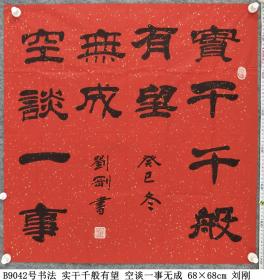 實干千般
有望
無成
空談一事
癸巳冬
劉剛書
B9042号书法 实干千般有望 空谈一事无成 68×68cm 刘刚